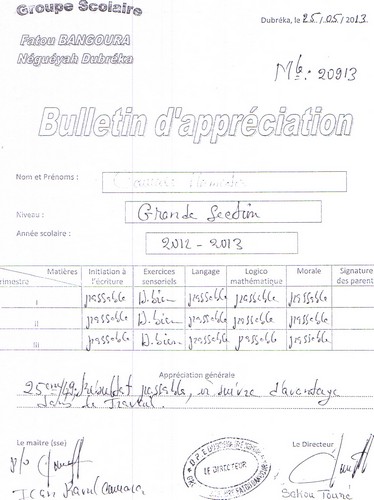 Groupe Scolaire
Dubréka, le 25/05/2013
Fatou BANGOURA
Néguéyah Dubréka
Mle: 20913
Bulletin d'appréciation
Nom et Prénoms :
Niveau : Grande Section
Année scolaire : 2012 - 2013
Matières Initiation à l'écriture Exercices sensoriels Langage Logico mathématique Morale Signature des parent
rimestre
I passable A.bien passable passable passable
II passable A.bien passable passable passable
III passable A.bien passable passable passable
Appréciation générale
25 eme/49, résultat passable, à suivre d'avantage
dans le travail.
Le maître (sse) Le Directeur
P/o
LE DIRECTEUR
Jean Sakou Touré